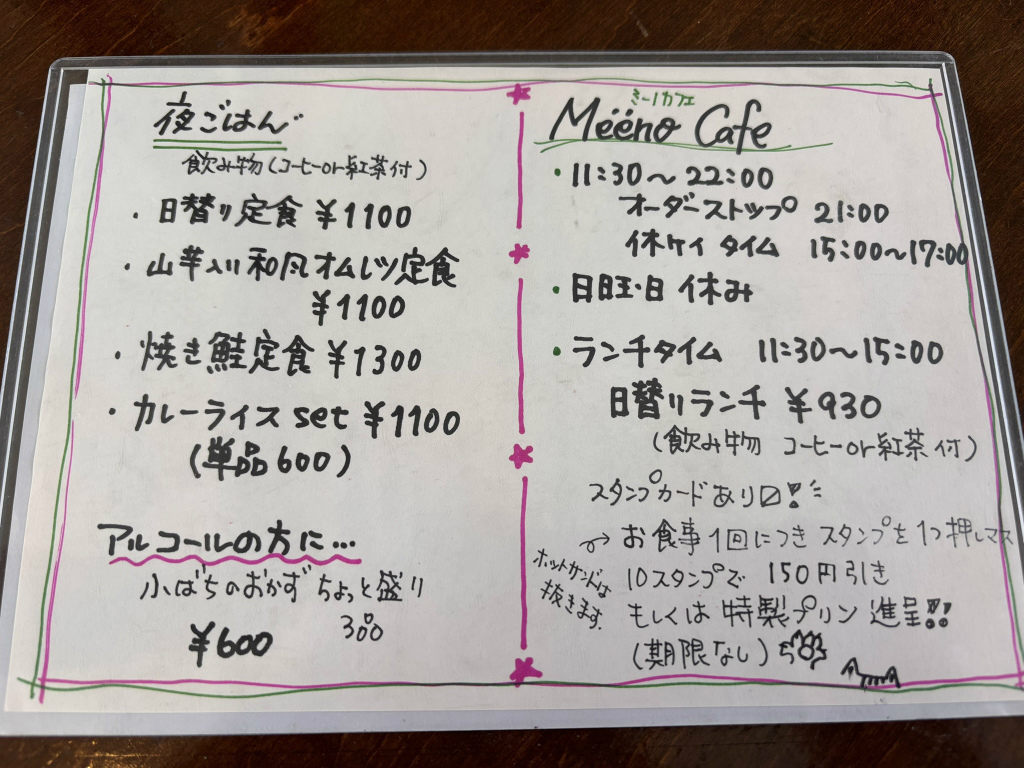 夜ごはん
飲み物(コーヒーor紅茶付)
・日替り定食 ¥1100
・山芋入り和風オムレツ定食
¥1100
・焼き鮭定食 ¥1300
・カレーライスset ¥1100
(単品600)
アルコールの方に…
小ばちのおかず ちょっと盛り
3品
¥600
Mëëno Cafe
・11:30〜22:00
オーダーストップ 21:00
休ケイ タイム 15:00〜17:00
・日曜日 休み
・ランチタイム 11:30〜15:00
日替りランチ ¥930
(飲み物 コーヒーor紅茶付)
スタンプカードあり〼!
お食事1回につき スタンプを1つ押しマス
ホットサンドは
抜きます.
10スタンプで 150円引き
もしくは 特製プリン 進呈!!
(期限なし)